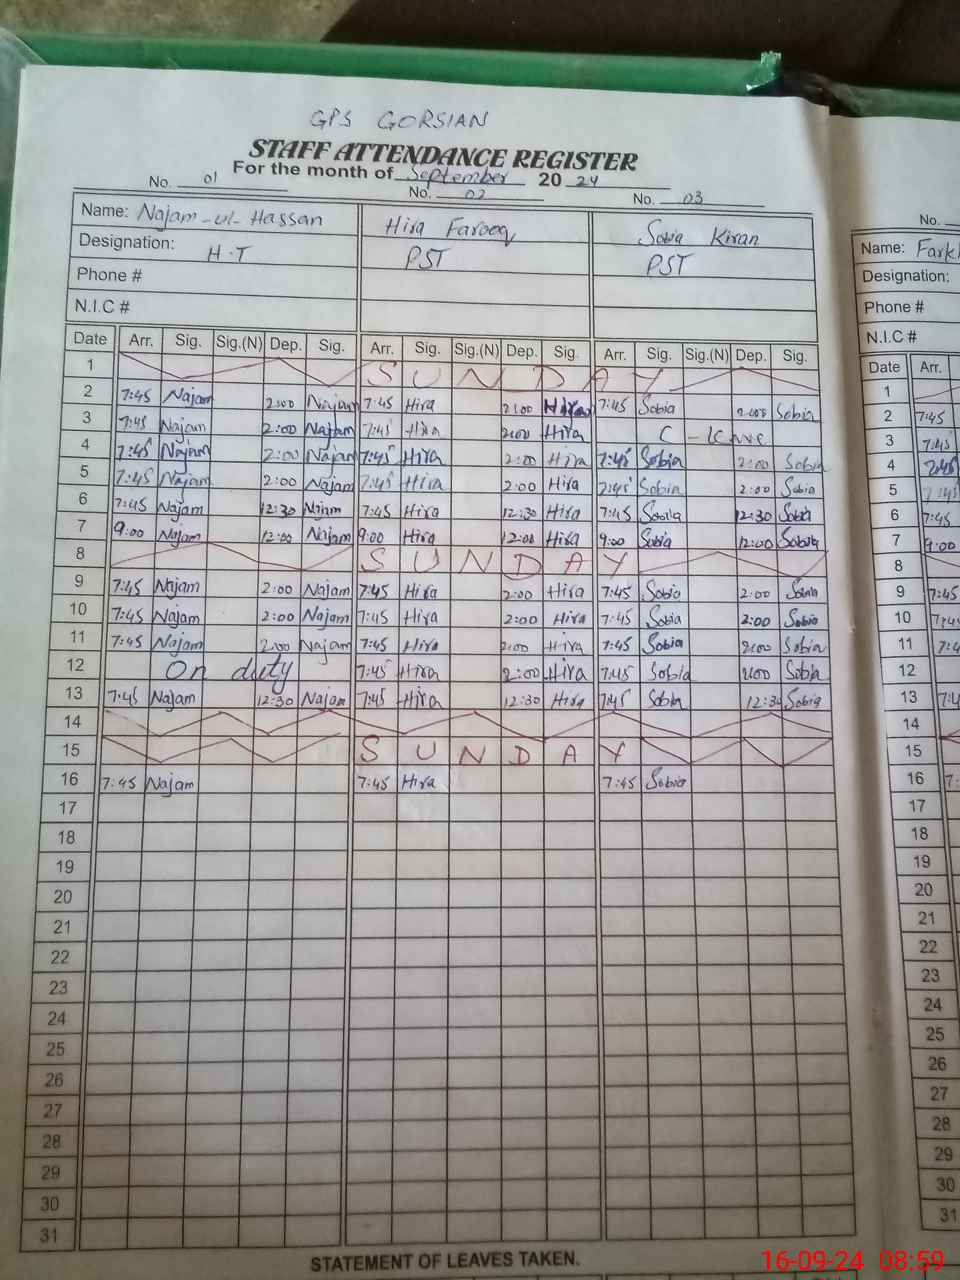 GPS GORSIAN
STAFF ATTENDANCE REGISTER
For the month of September 20 24
No. 01 No. 02 No. 03 No.
Name: Najam-ul-Hassan Hira Farooq Sobia Kiran Name:
Designation: H.T PST PST Designation:
Phone # Phone #
N.I.C # N.I.C #
Date Arr. Sig. Sig.(N) Dep. Sig. Arr. Sig. Sig.(N) Dep. Sig. Arr. Sig. Sig.(N) Dep. Sig. Date Arr.
1 SUNDAY 1
2 7:45 Najam 2:00 Najam 7:45 Hira 2:00 Hira 7:45 Sobia 2:00 Sobia 2 7:45
3 7:45 Najam 2:00 Najam 7:45 Hira 2:00 Hira C-leave 3 7:45
4 7:45 Najam 2:00 Najam 7:45 Hira 2:00 Hira 7:45 Sobia 2:00 Sobia 4 7:45
5 7:45 Najam 2:00 Najam 7:45 Hira 2:00 Hira 7:45 Sobia 2:00 Sobia 5 7:45
6 7:45 Najam 12:30 Najam 7:45 Hira 12:30 Hira 7:45 Sobia 12:30 Sobia 6 7:45
7 9:00 Najam 12:00 Najam 9:00 Hira 12:00 Hira 9:00 Sobia 12:00 Sobia 7 9:00
8 SUNDAY 8
9 7:45 Najam 2:00 Najam 7:45 Hira 2:00 Hira 7:45 Sobia 2:00 Sobia 9 7:45
10 7:45 Najam 2:00 Najam 7:45 Hira 2:00 Hira 7:45 Sobia 2:00 Sobia 10
11 7:45 Najam 2:00 Najam 7:45 Hira 2:00 Hira 7:45 Sobia 2:00 Sobia 11
12 On duty 7:45 Hira 2:00 Hira 7:45 Sobia 2:00 Sobia 12
13 7:45 Najam 12:30 Najam 7:45 Hira 12:30 Hira 7:45 Sobia 12:30 Sobia 13
14 14
15 SUNDAY 15
16 7:45 Najam 7:45 Hira 7:45 Sobia 16
17 17
18 18
19 19
20 20
21 21
22 22
23 23
24 24
25 25
26 26
27 27
28 28
29 29
30 30
31 31
STATEMENT OF LEAVES TAKEN.
16-09-24 08:59